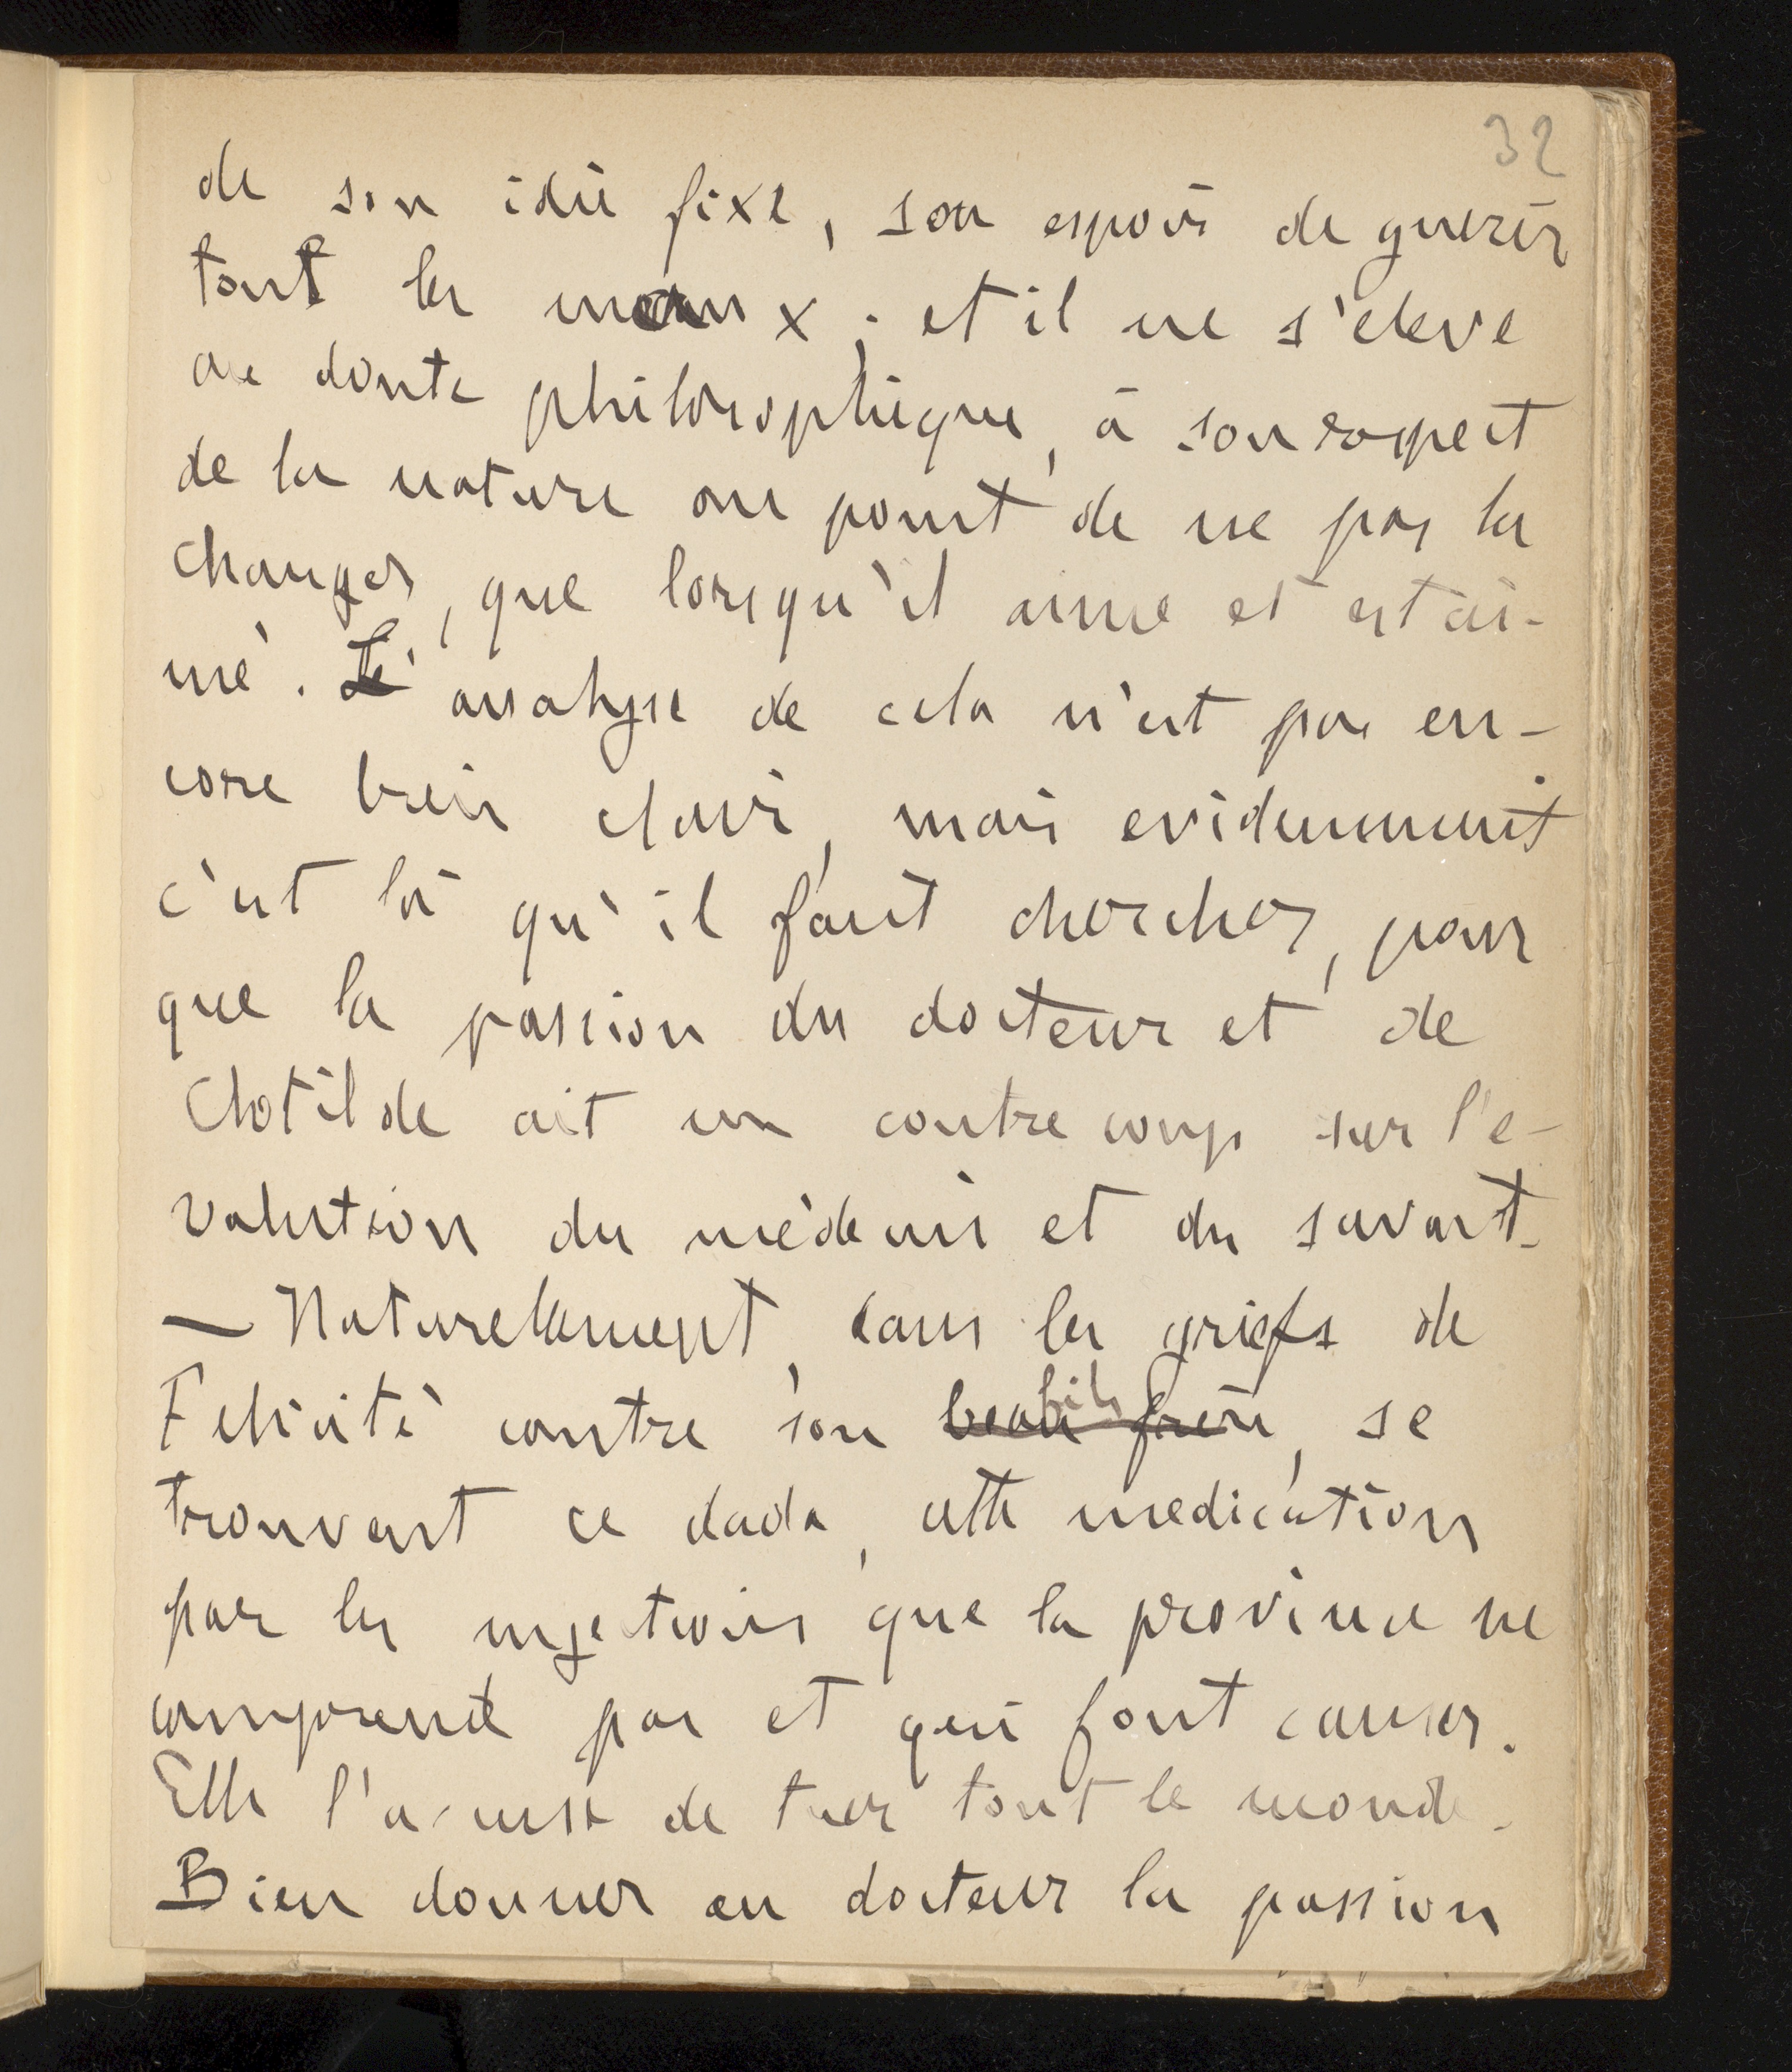 32
de son idée fixe, son espoir de guerir
tout les maux ; et il ne s'eleve
au doute philosophique, à son respect
de la nature au point de ne pas la
changer, que lorsqu'il aime et est ai-
mé. L'analyse de cela n'est pas en-
core bien clair, mais evidemment
c'est là qu'il faut chercher, pour
que la passion du docteur et de
Clotilde ait un contre coup sur l'e-
volution du médecin et du savant.
— Naturellement, dans les griefs de
Felicité contre son beau frère fils, se
trouvent ce dada, cette medication
par les injections que la province ne
comprend pas et qui font causer.
Elle l'accuse de tuer tout le monde.
Bien donner au docteur la passion